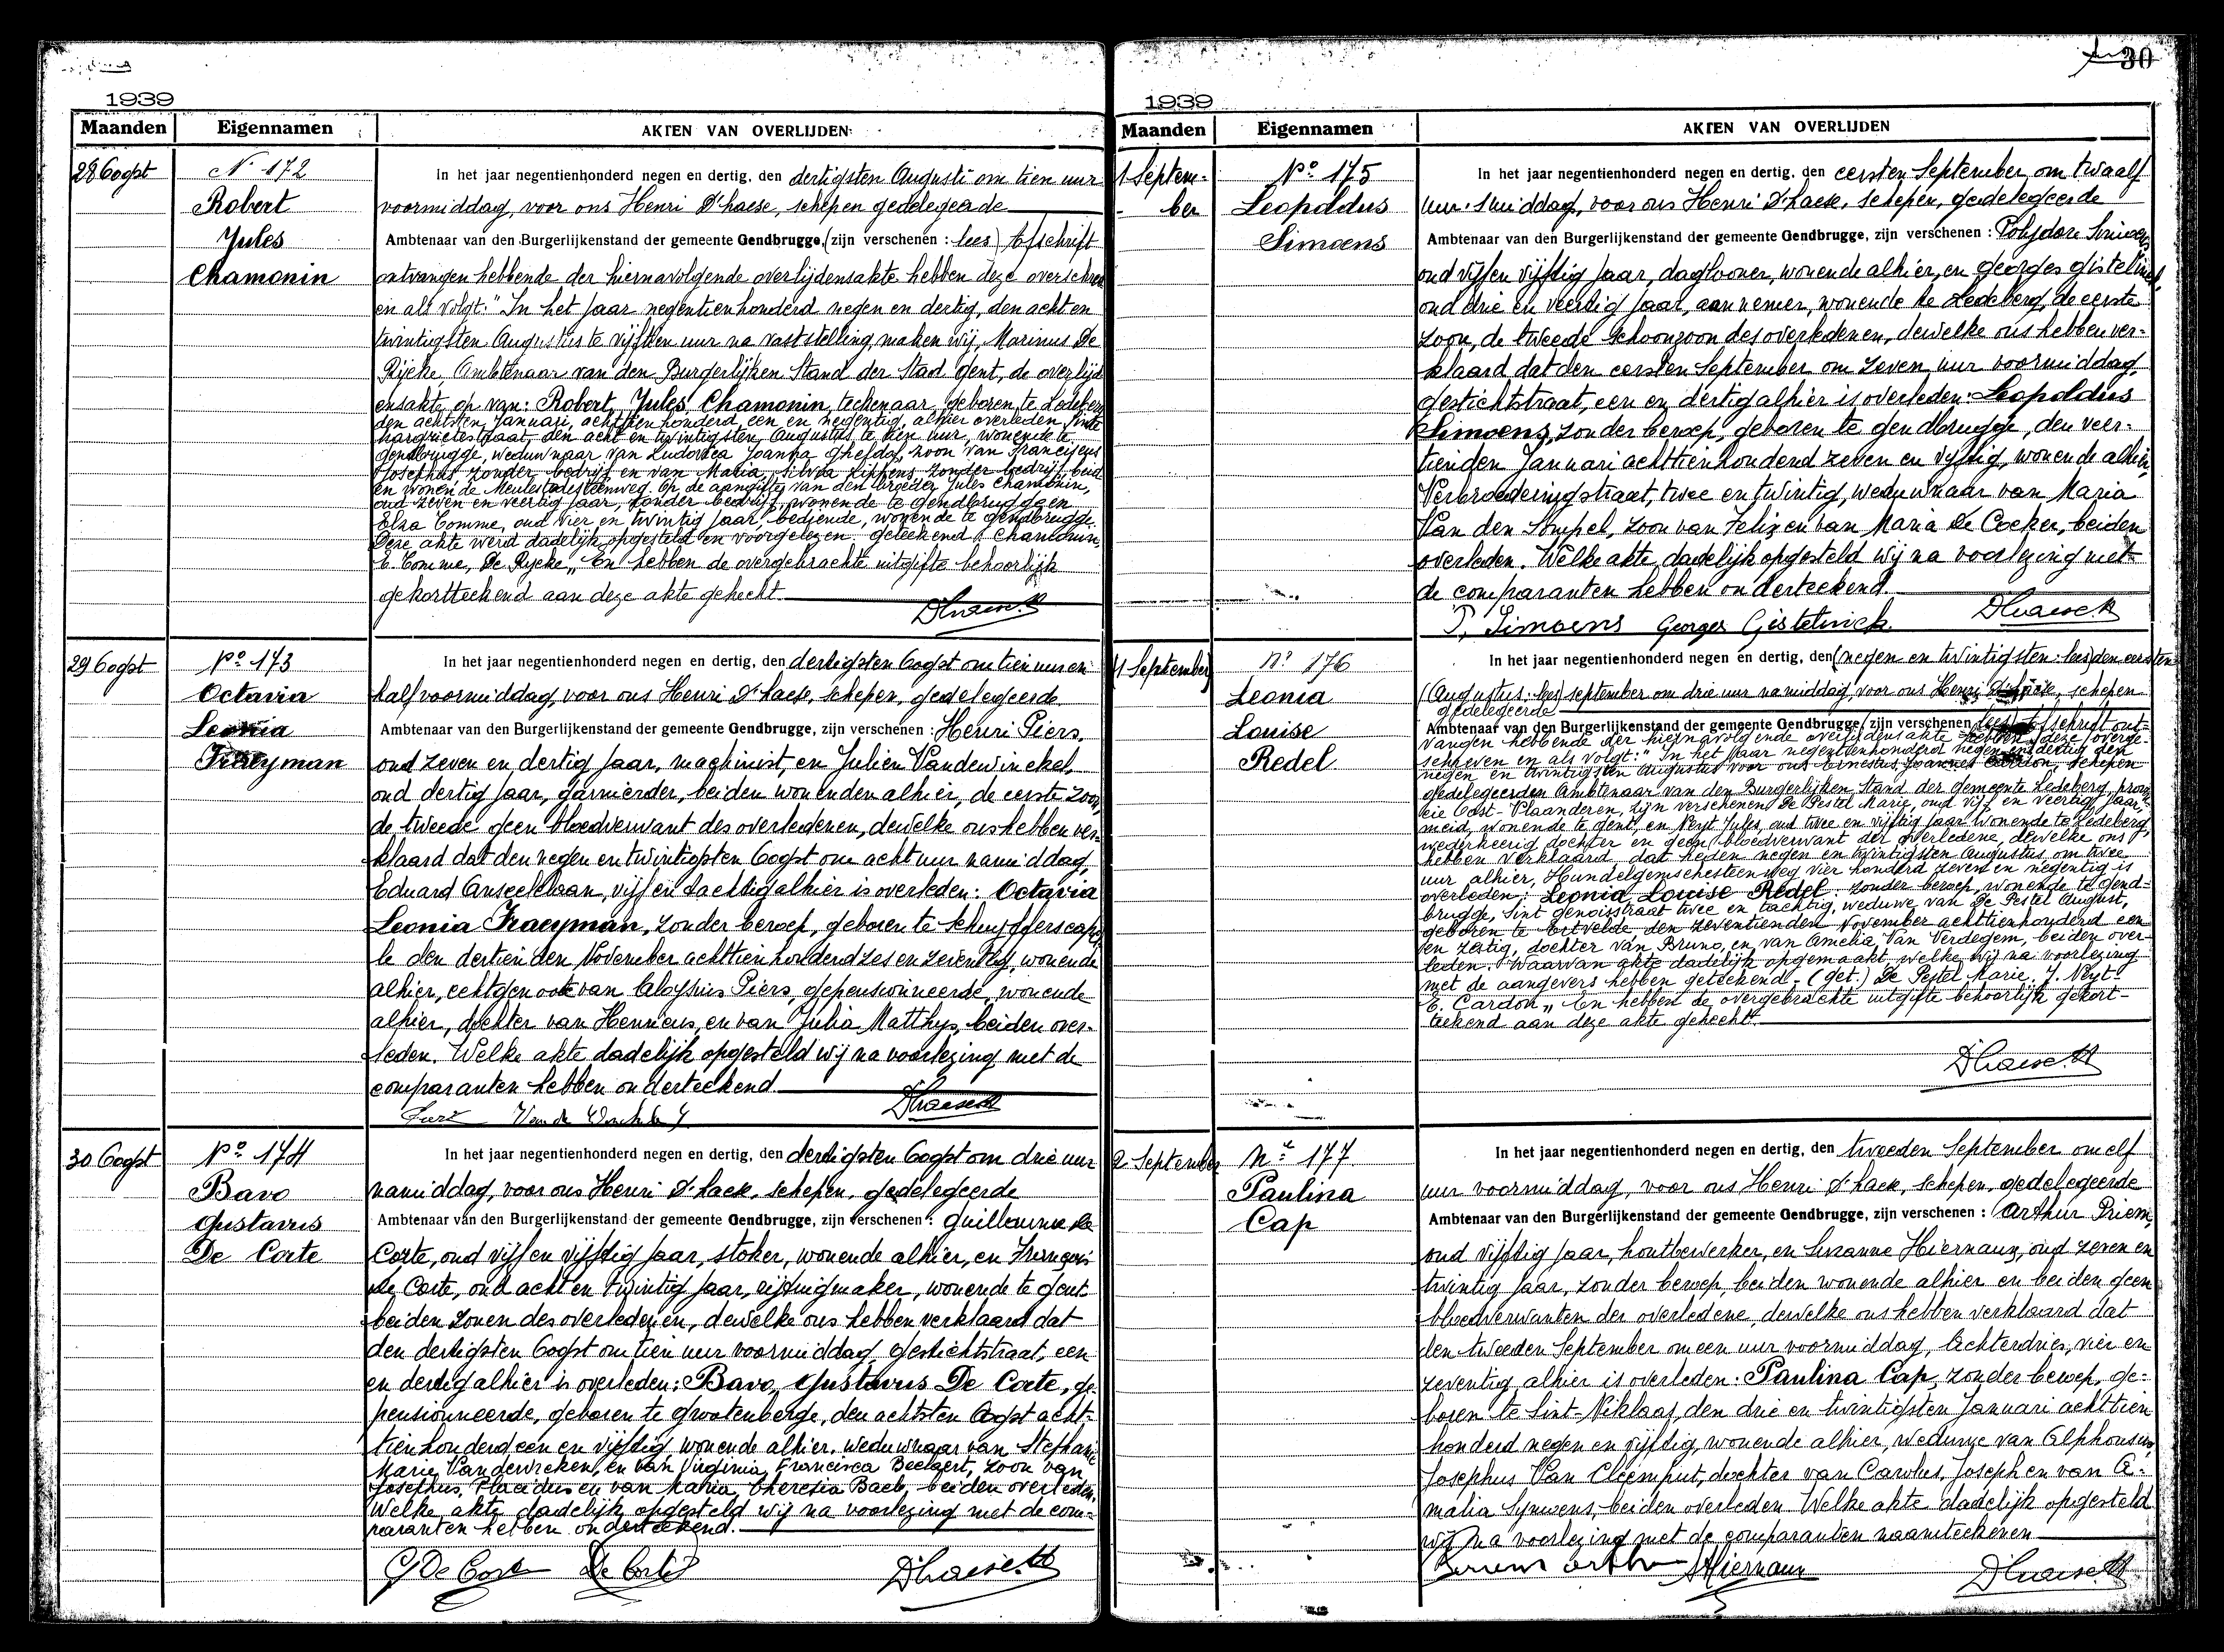 1939
Maanden Eigennamen AKTEN VAN OVERLIJDEN
28 Oogst
N° 172
Robert
Jules
Chamonin
In het jaar negentienhonderd negen en dertig, den dertigsten Augusti om tien uur
voormiddag, voor ons Henri D'haese, schepen gedelegeerde
Ambtenaar van den Burgerlijkenstand der gemeente Gendbrugge, (zijn verschenen : lees) Afschrift
ontvangen hebbende der hiernavolgende overlijdensakte hebben deze overschre
en als volgt: "In het jaar negentienhonderd negen en dertig, den acht en
twintigsten Augustus te vijftien uur na vaststelling, maken wij, Marinus De
Rijcke, Ambtenaar van den Burgerlijken Stand der Stad Gent, de overlijd
ensakte op van: Robert, Jules, Chamonin, teekenaar, geboren te Ledeberg
den achtsten Januari, achttienhonderd een en negentig, alhier overleden Sinte
Margrietestraat, den acht en twintigsten Augustus te tien uur, wonende te
Gendbrugge, weduwnaar van Ludovica Joanna Ghesdal, zoon van Franciscus
Josephus, zonder bedrijf en van Maria, Silvia Lippens, zonder bedrijf, beid
en wonende Meulestedesteenweg. Op de aangifte van den broeder Jules Chamonin,
oud zeven en veertig jaar, zonder bedrijf, wonende te Gendbrugge en
Elza Comme, oud vier en twintig jaar, bediende, wonende te Gendbrugge.
Deze akte werd dadelijk opgesteld en voorgelezen. geteekend J. Chamonin,
E. Comme, De Rycke „ En hebben de overgebrachte uitgifte behoorlijk
gekortteekend aan deze akte gehecht.
D'haese H
29 Oogst
N° 173
Octavia
Leonia
Fraeyman
In het jaar negentienhonderd negen en dertig, den dertigsten Oogst om tien uur en
half voormiddag, voor ons Henri D'haese, schepen, gedelegeerde
Ambtenaar van den Burgerlijkenstand der gemeente Gendbrugge, zijn verschenen : Henri Piers,
oud zeven en dertig jaar, machinist, en Julien Vandewinckel,
oud dertig jaar, garnierder, beiden wonenden alhier, de eerste zoon,
de tweede geen bloedverwant des overledenen, dewelke ons hebben ver-
klaard dat den negen en twintigsten Oogst om acht uur namiddag,
Eduard Anseelelaan, vijf en tachtig alhier is overleden: Octavia
Leonia Fraeyman, zonder beroep, geboren te Scheuffferscapel
le den dertienden November achttienhonderd zes en zeventig, wonende
alhier, echtgenoote van Aloysius Piers, gepensionneerde, wonende
alhier, dochter van Henricus, en van Julia Matthys, beiden over-
leden. Welke akte dadelijk opgesteld wij na voorlezing met de
comparanten hebben onderteekend.
D'haese H
30 Oogst
N° 174
Bavo
Gustavus
De Corte
In het jaar negentienhonderd negen en dertig, den dertigsten Oogst om drie uur
namiddag, voor ons Henri D'haese, schepen, gedelegeerde
Ambtenaar van den Burgerlijkenstand der gemeente Gendbrugge, zijn verschenen : Guillaume De
Corte, oud vijf en vijftig jaar, stoker, wonende alhier, en François
De Corte, oud acht en twintig jaar, rijtuigmaker, wonende te Gent
beiden zonen des overledenen, dewelke ons hebben verklaard dat
den dertigsten Oogst om tien uur voormiddag, Gestichtstraat, een
en dertig alhier is overleden: Bavo, Gustavus De Corte, ge-
pensionneerde, geboren te Grootenberge, den achtsten Oogst acht-
tienhonderd een en vijftig, wonende alhier, weduwnaar van Stephanie
Marie Vanderveken, en van Virginia, Francisca Beelaert, zoon van
Josephus, Placidus en van Maria, Theresia Baele, beiden overleden.
Welke akte dadelijk opgesteld wij na voorlezing met de com-
paranten hebben onderteekend.
G De Corte De Corte D'haese H
30
1939
Maanden Eigennamen AKTEN VAN OVERLIJDEN
1 Septem-
ber
N° 175
Leopoldus
Simoens
In het jaar negentienhonderd negen en dertig, den eersten September om twaalf
uur 's middag, voor ons Henri D'haese, schepen, gedelegeerde
Ambtenaar van den Burgerlijkenstand der gemeente Gendbrugge, zijn verschenen : Polydore Simoens
oud vijf en vijftig jaar, daglooner, wonende alhier, en Georges Gistelinck,
oud drie en veertig jaar, aannemer, wonende te Ledeberg, de eerste
zoon, de tweede schoonzoon des overledenen, dewelke ons hebben ver-
klaard dat den eersten September om zeven uur voormiddag,
Gestichtstraat, een en dertig alhier is overleden: Leopoldus
Simoens, zonder beroep, geboren te Gendbrugge, den veer-
tienden Januari achttienhonderd zeven en vijftig, wonende alhier,
Verbroederingstraat, twee en twintig, weduwnaar van Maria
Van den Sompel, zoon van Felix en van Maria De Cocker, beiden
overleden. Welke akte dadelijk opgesteld wij na voorlezing met
de comparanten hebben onderteekend.
P. Simoens Georges Gistelinck. D'haese H
(1 September)
N° 176
Leonia
Louise
Redel
In het jaar negentienhonderd negen en dertig, den (negen en twintigsten: lees) den eersten
(Augustus: lees) september om drie uur namiddag, voor ons Henri D'haese, schepen
gedelegeerde
Ambtenaar van den Burgerlijkenstand der gemeente Gendbrugge, (zijn verschenen lees) Afschrift ont-
vangen hebbende der hiernavolgende overlijdensakte hebben deze overge-
schreven en als volgt: "In het jaar negentienhonderd negen en dertig den
negen en twintigsten Augustus voor ons Ernestus, Joannes Cardon, schepen
gedelegeerden Ambtenaar van den Burgerlijken Stand der gemeente Ledeberg, provin-
cie Oost-Vlaanderen, zijn verschenen De Pestel Marie, oud vijf en veertig jaar,
meid, wonende te Gent, en Neyt Jules, oud twee en vijftig jaar wonende te Ledeberg,
wederkeerig dochter en geen bloedverwant der overledene, dewelke ons
hebben verklaard, dat heden negen en twintigsten Augustus om twee
uur alhier, Hundelgemschesteenweg vier honderd zeven en negentig is
overleden: Leonia Louise Redel, zonder beroep, wonende te Gend-
brugge, Sint Genoisstraat twee en tachtig, weduwe van De Pestel August,
geboren te Ertvelde den zeventienden November achttienhonderd een
en zestig, dochter van Bruno, en van Amelia Van Verdegem, beiden over-
leden. Waarvan akte dadelijk opgemaakt welke wij na voorlezing
met de aangevers hebben geteekend. (get.) De Pestel Marie. J. Neyt
E. Cardon „ En hebben de overgebrachte uitgifte behoorlijk gekort-
teekend aan deze akte gehecht.
D'haese H
2 September
N° 177
Paulina
Cap
In het jaar negentienhonderd negen en dertig, den tweeden September om elf
uur voormiddag, voor ons Henri D'haese, schepen, gedelegeerde
Ambtenaar van den Burgerlijkenstand der gemeente Gendbrugge, zijn verschenen : Arthur Priem,
oud vijftig jaar, houtbewerker, en Suzanne Hiernaux, oud zeven en
twintig jaar, zonder beroep, beiden wonende alhier en beiden geen
bloedverwanten der overledene, dewelke ons hebben verklaard dat
den tweeden September om een uur voormiddag, Achterdries, vier en
zeventig alhier is overleden: Paulina Cap, zonder beroep, ge-
boren te Sint-Niklaas, den drie en twintigsten Januari achttien
honderd negen en vijftig, wonende alhier, weduwe van Alphonsus,
Josephus Van Cleemput, dochter van Carolus, Joseph en van A-
malia Synwens, beiden overleden. Welke akte dadelijk opgesteld
wij na voorlezing met de comparanten naamteekenen
Priem Arthur S Hiernaux D'haese H